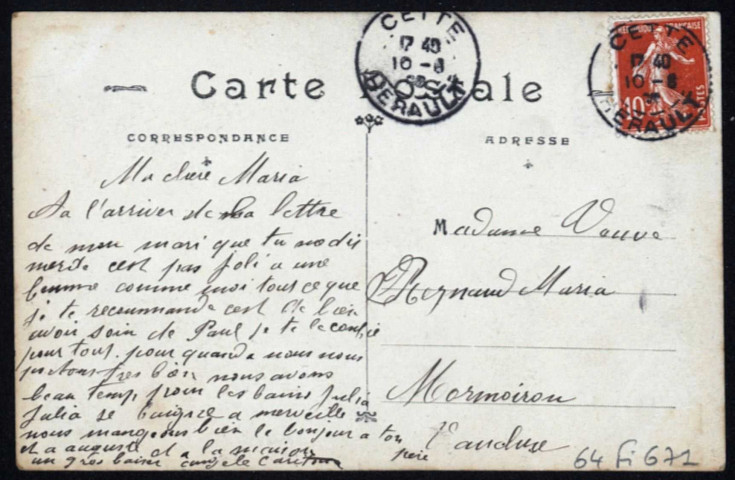 Carte Postale
CORRESPONDANCE
ADRESSE
CETTE
17 40
10 - 8
HERAULT
REPUBLIQUE FRANÇAISE
10
POSTES
CETTE
17 40
10 - 8
HERAULT
Ma chere Maria
a l'arriver de la lettre
de mon mari que tu no dis
merde cest pas joli a une
femme comme moi tous ce que
je te recommande cest de bien
avoir soin de Paul je te le confie
pour tout. pour quand a nous nous
portons tres bien nous avons
beau temp pour les bains Julia
Julia se baigne a merveille
nous mangeons bien le bonjour a ton
pere
et a auguste et a la maison
un gros baiser
Madame Veuve
Reynaud Maria
Mormoiron
Vaucluse
64 fi 671